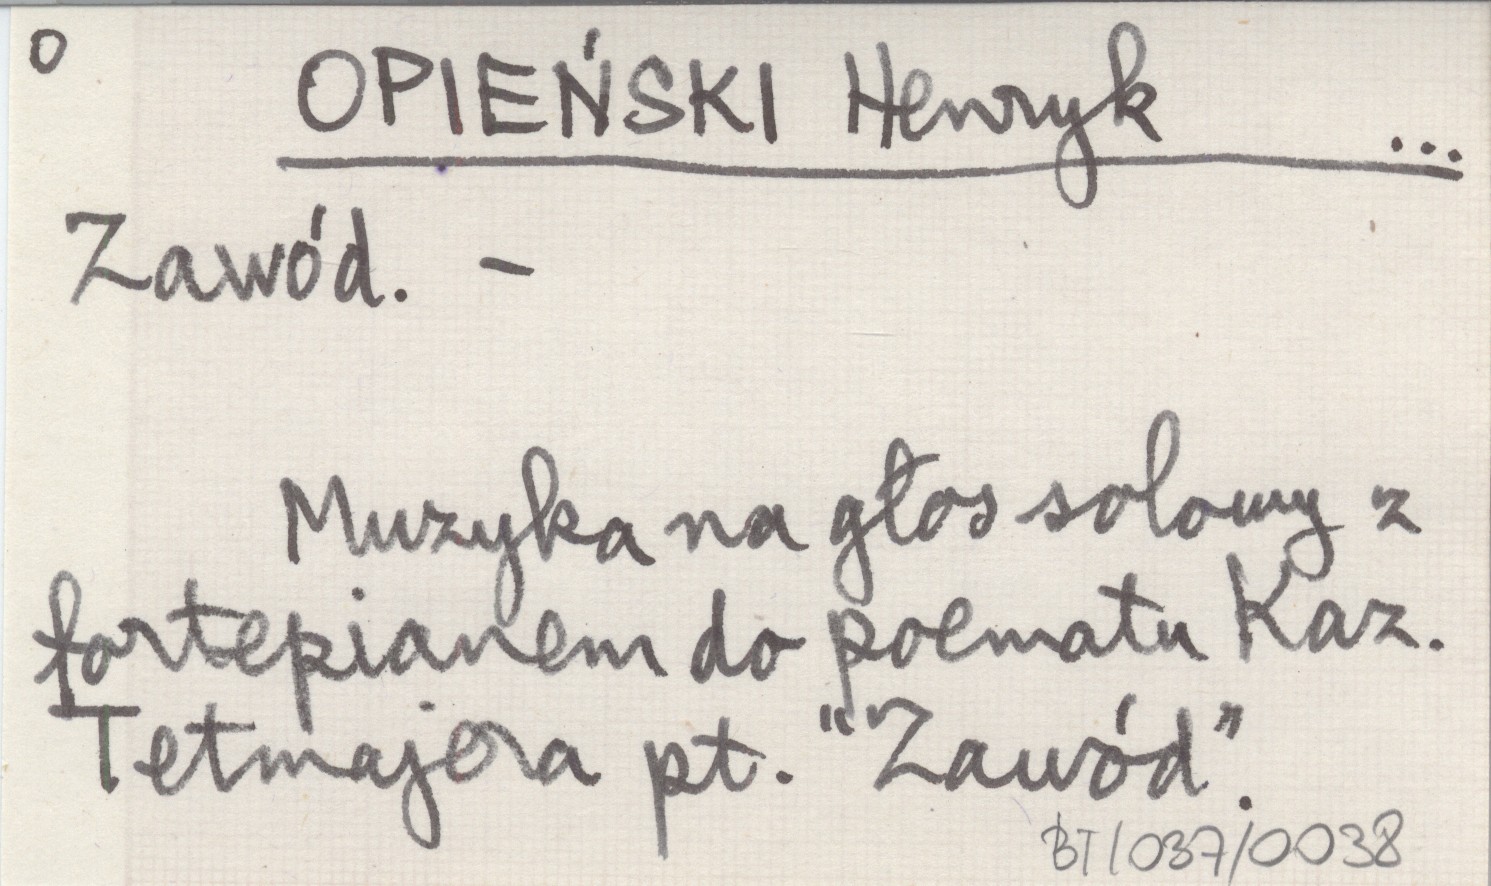 O
OPIEŃSKI Henryk ...
Zawód. -
Muzyka na głos solowy z
fortepianem do poematu Kaz.
Tetmajera pt. "Zawód".
BT/037/0038